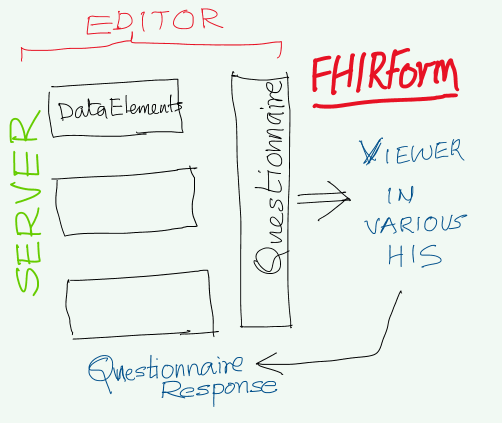 EDITOR
FHIRForm
DataElements
SERVER
Questionnaire
VIEWER
IN
VARIOUS
HIS
Questionnaire
Response